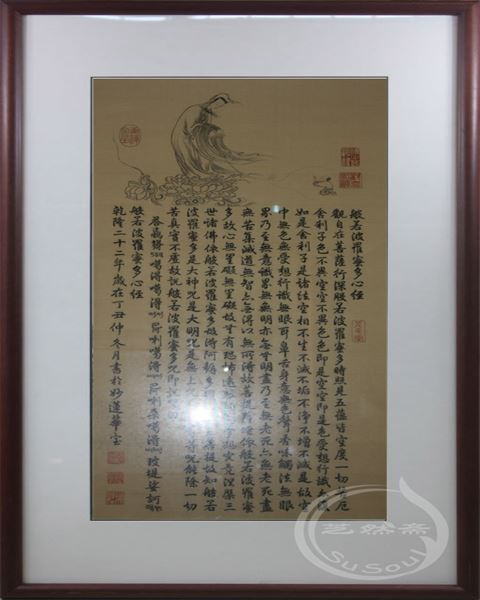 般若波羅蜜多心經
觀自在菩薩行深般若波羅蜜多時照見五蘊皆空度一切苦厄
舍利子色不異空空不異色色即是空空即是色受想行識
如是舍利子是諸法空相不生不滅不垢不淨不增不減是故空
中無色無受想行識無眼耳鼻舌身意無色聲香味觸法無眼
界乃至無意識界無無明亦無無明盡乃至無老死亦無老死盡
無苦集滅道無智亦無得以無所得故菩提薩埵依般若波羅蜜
多故心無罣礙無罣礙故無有恐怖遠夢想究竟涅槃三
世諸佛依般若波羅蜜多故得阿耨多羅菩提故知般若
波羅蜜多是大神咒是大明咒是無上等咒能除一切
苦真實不虛故說般若波羅蜜多咒即說咒曰
般若波羅蜜多心經
乾隆二十二年歲在丁丑仲冬月書於妙蓮華室
芝然斋
SuSoul